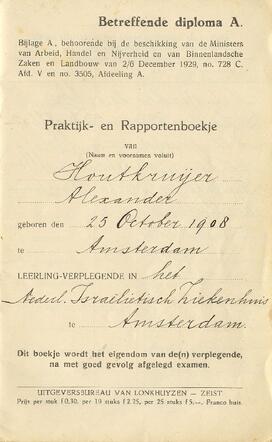 Betreffende diploma A.
Bijlage A, behoorende bij de beschikking van de Ministers
van Arbeid, Handel en Nijverheid en van Binnenlandsche
Zaken en Landbouw van 2/6 December 1929, no. 728 C.
Afd. V en no. 3505, Afdeeling A.
Praktijk- en Rapportenboekje
van
(Naam en voornamen voluit)
Houtkruijer
Alexander
geboren den 25 October 1908
te Amsterdam
LEERLING-VERPLEGENDE IN het
Nederl. Israëlitisch Ziekenhuis
te Amsterdam.
Dit boekje wordt het eigendom van de(n) verplegende,
na met goed gevolg afgelegd examen.
UITGEVERSBUREAU VAN LONKHUYZEN — ZEIST
Prijs per stuk f 0,30, per 10 stuks f 2.25, per 25 stuks f 5.—. Franco huis.